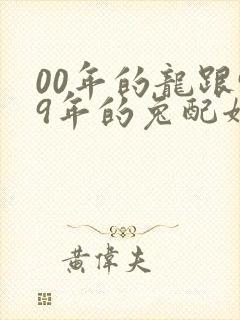 00年的龍跟
9年的兔配
黃偉夫